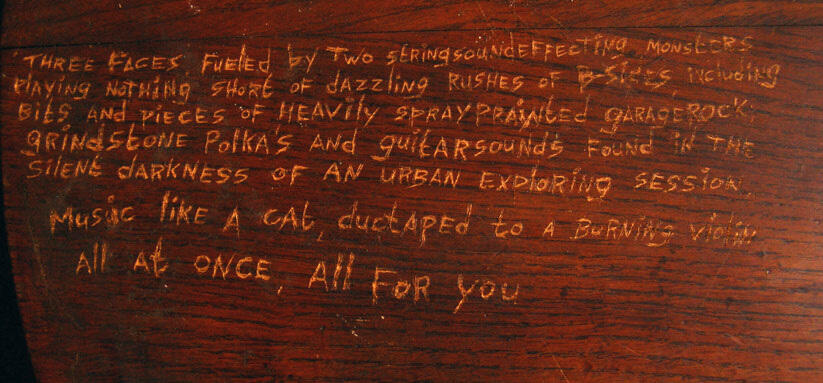 THREE FACES FUELED by TWO stRINGSOUNdEFFECTING MONSTERS
PLAYING NOTHING SHORt OF dAZZLING RUSHES OF B-SIdES, INCluding
BitS AND piECES OF HEAVily SPRAYPRAINtEd GARAGEROCK,
GRINdStONE POLKA'S ANd guitARSOUNdS FOUNd IN THE
SILENt dARKNESS OF AN URBAN EXPLORING SESSION.
MuSic liKE A CAt, ductAPEd to A BURNING violiN
All At ONCE, All FOR you